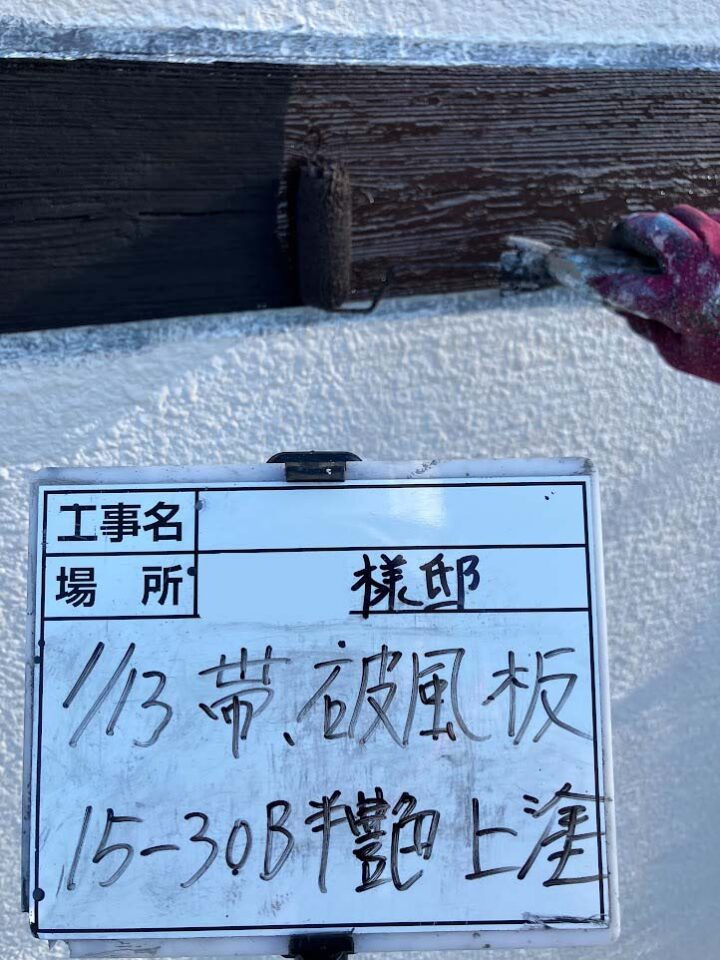 工事名
場所 様邸
1/13 帯、破風板
15-30B 半艶 上塗